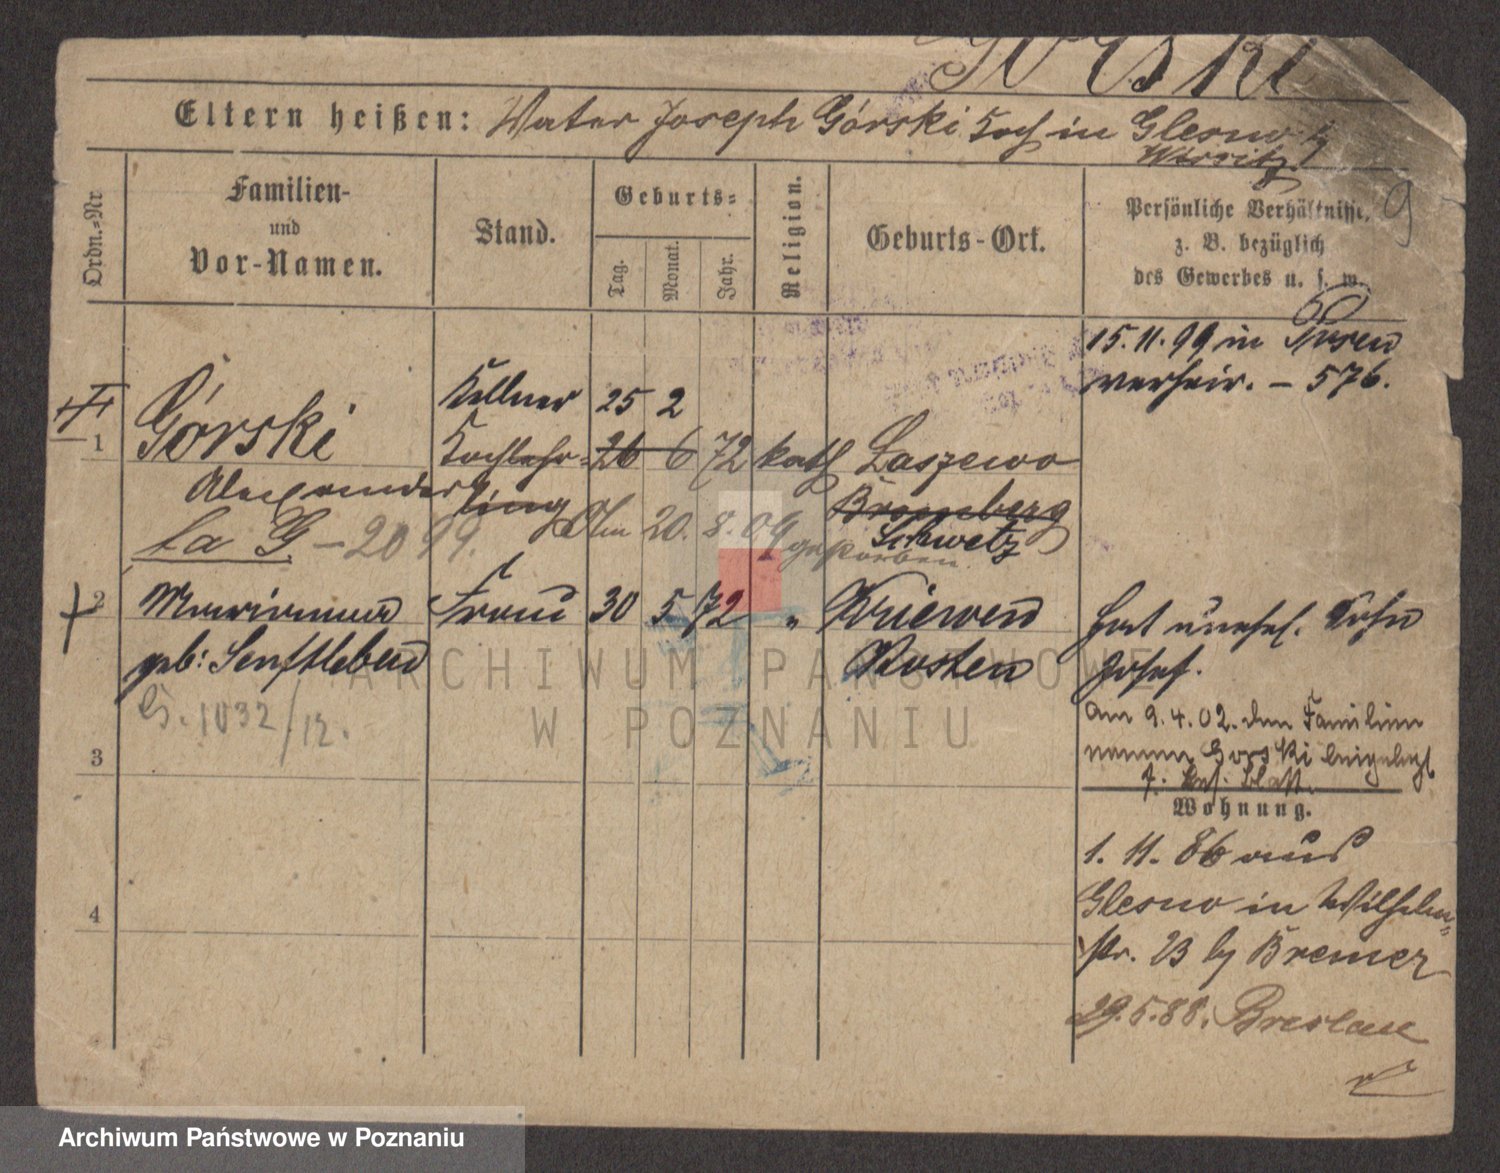 Górski
Eltern heißen: Vater Joseph Górski Koch in Glesno
Wirsitz
9
Ordn.-Nr
Familien-
und
Vor-Namen.
Stand.
Geburts-
Tag.
Monat.
Jahr.
Religion.
Geburts-Ort.
Persönliche Verhältnisse,
z. B. bezüglich
des Gewerbes u. s. w.
15.11.99 in Posen
verheir. - 576.
1
Górski
Alexander
Kellner
Kochlehr-
ling
25 2
26 6 72 kath
Laszewo
Bromberg
Schwetz
La G - 2099.
Am 20.8.09 gestorben.
2
Marianna
geb: Senftleben
Frau 30 5 72 "
Kriewen
Kosten
G. 1032/12.
hat unehel. Sohn
Josef.
am 9.4.02. den Familien
namen Gorski beigelegt
f. bes. Blatt.
3
Wohnung.
1. 11. 86 aus
Glesno in Wilhelm-
str. 23 by Bremer
29.5.88. Breslau
4
ARCHIWUM PAŃSTWOWE
W POZNANIU
Archiwum Państwowe w Poznaniu